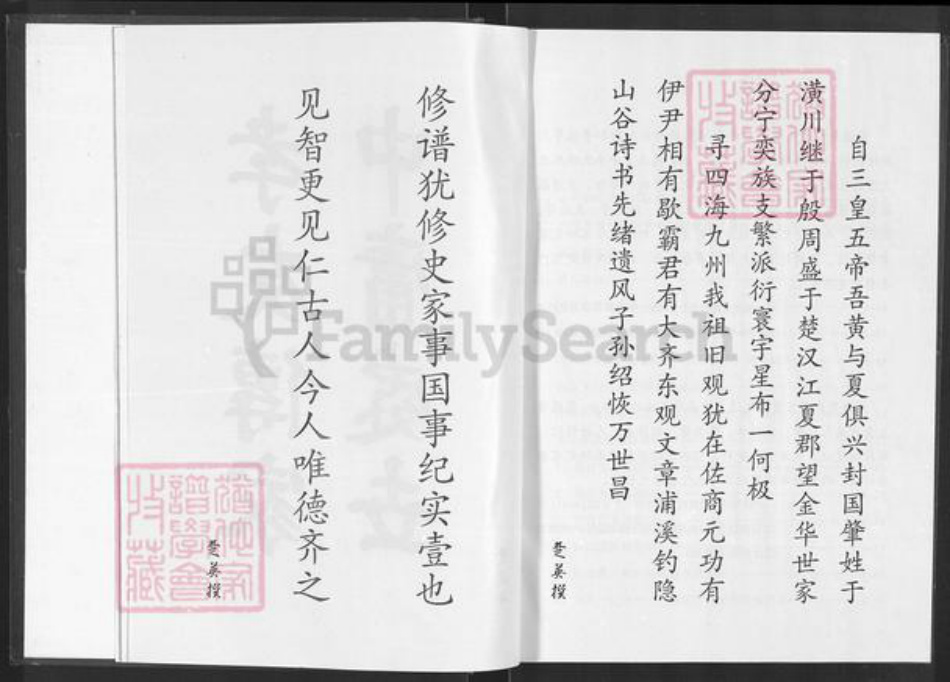 自三皇五帝吾黄与夏俱兴封国肇姓于
潢川继于殷周盛于楚汉江夏郡望金华世家
分宁奕族支繁派衍寰宇星布一何极
寻四海九州我祖旧观犹在佐商元功有
伊尹相有歇霸君有大齐东观文章浦溪钓隐
山谷诗书先绪遗风子孙绍恢万世昌
楚英撰
修谱犹修史家事国事纪实壹也
见智更见仁古人今人唯德齐之
楚英撰
FamilySearch